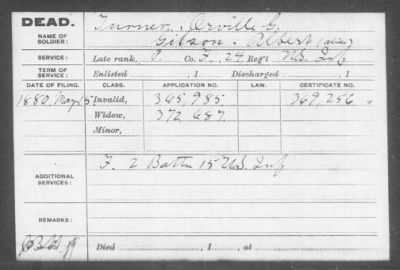 DEAD.
NAME OF SOLDIER:
Turner, Orville G.
Gilson, Albert (alias)
SERVICE:
Late rank, P. Co. F, 24 Reg't U.S. Inf
TERM OF SERVICE:
Enlisted , 1 Discharged , 1
DATE OF FILING. CLASS. APPLICATION NO. LAW. CERTIFICATE NO.
1880, May 15 Invalid, 365,985 369,256
Widow, 372,687
Minor,
ADDITIONAL SERVICES:
F. 2 Battn 15 U.S. Inf
REMARKS:
Died , 1 , at